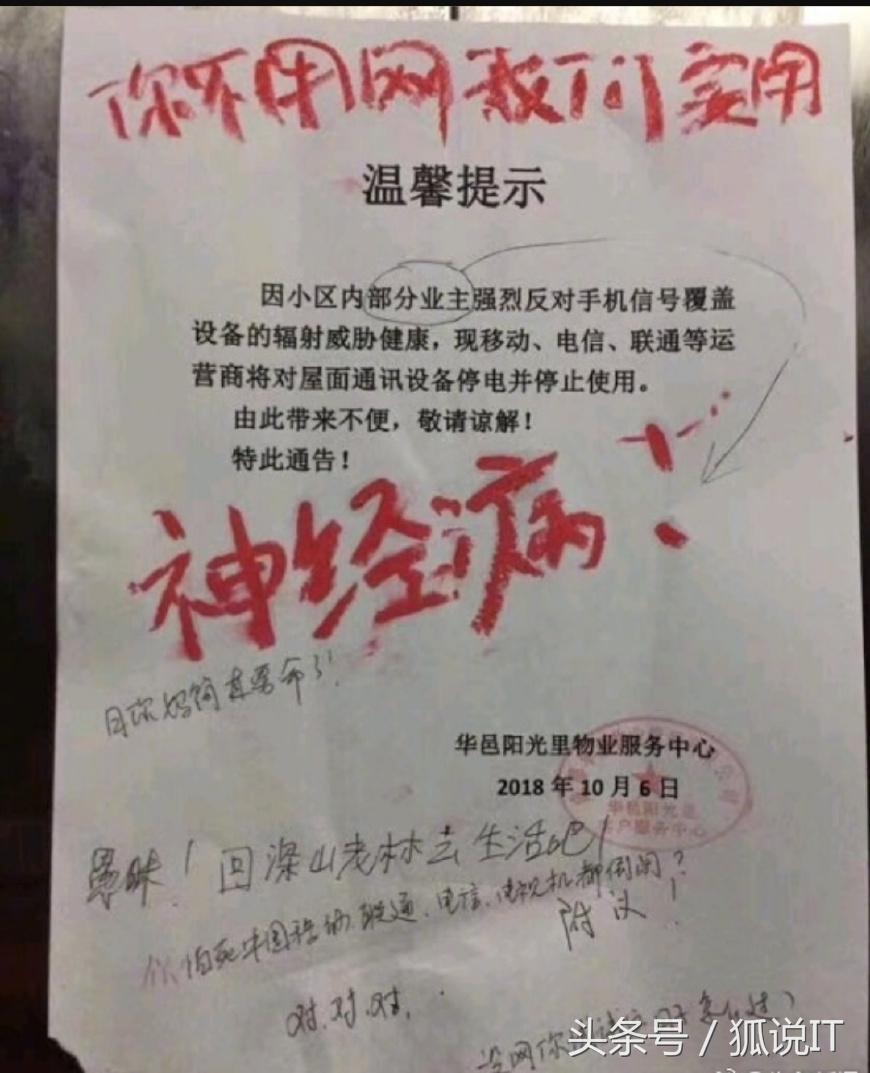 你不用网我们实用
温馨提示
因小区内部分业主强烈反对手机信号覆盖
设备的辐射威胁健康，现移动、电信、联通等运
营商将对屋面通讯设备停电并停止使用。
由此带来不便，敬请谅解！
特此通告！
神经病！
日你妈简直要命了！
华邑阳光里物业服务中心
2018 年 10 月 6 日
华邑阳光里
客户服务中心
愚昧！回深山老林去生活吧！
怕死中国移动、联通、电信、电视机都倒闭？
附议！
对、对、对、
没网你
头条号 / 狐说IT